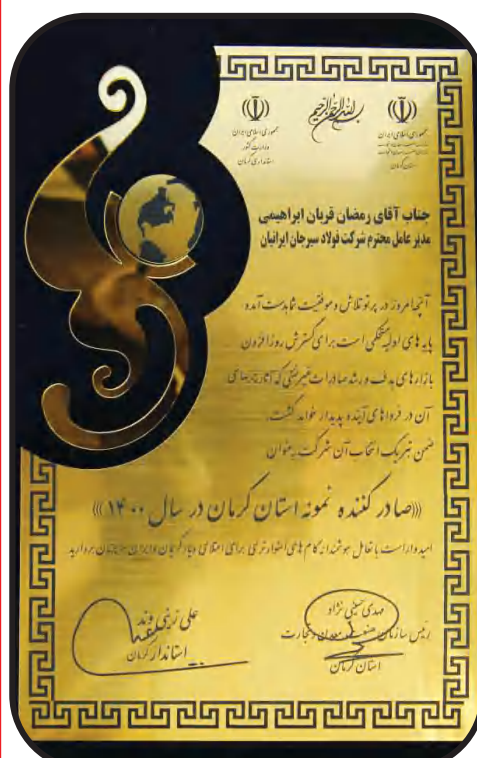 بسم الله الرحمن الرحیم
جمهوری اسلامی ایران
جمهوری اسلامی ایران
وزارت کشور
استانداری کرمان
استان کرمان
جناب آقای رمضان قربان ابراهیمی
مدیر عامل محترم شرکت فولاد سیرجان ایرانیان
آنچه امروز در پرتو تلاش و موفقیت شما بدست آمده
پایه های اولیه محکمی است برای گسترش روزافزون
بازارهای هدف و رشد صادرات غیرنفتی که آثار
آن در فرداهای آینده پدیدار خواهد گشت.
ضمن تبریک انتخاب آن شرکت بعنوان
(((صادر کننده نمونه استان کرمان در سال ۱۴۰۰)))
امیدوار است با تعامل هوشمندانه گام های استوارتری برای اعتلای دیار کریمان و ایران بردارید
مهدی حسینی نژاد
رئیس سازمان صنعت، معدن و تجارت
استان کرمان
علی زینی وند
استاندار کرمان